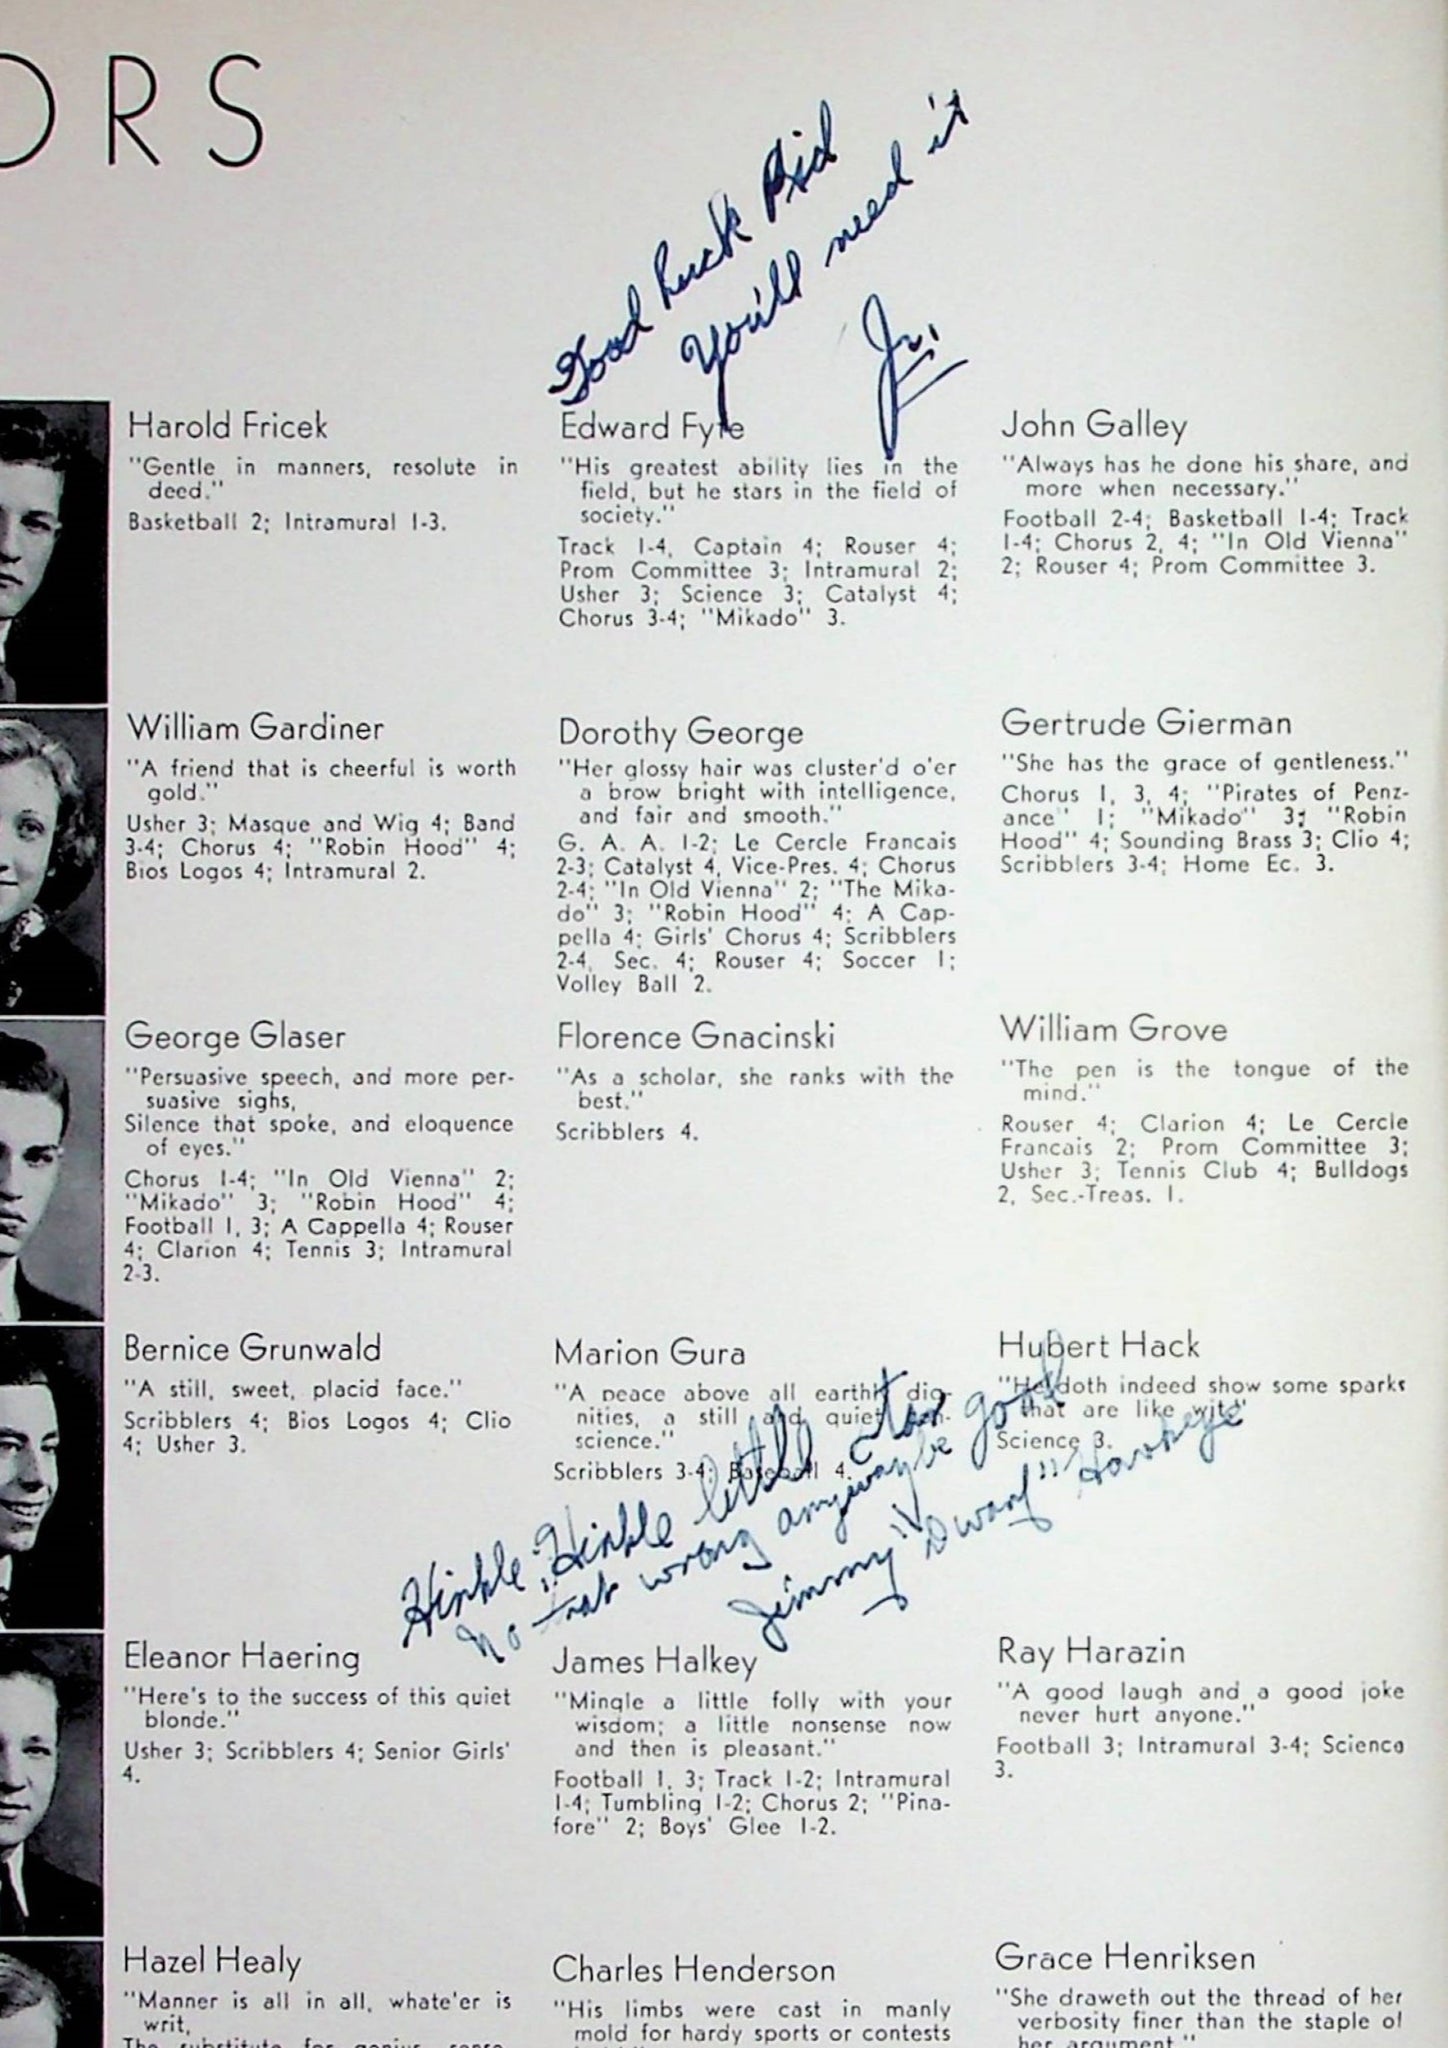 ORS
Good Luck Kid
You'll need it
Jr.
Harold Fricek
"Gentle in manners, resolute in
deed."
Basketball 2; Intramural 1-3.
Edward Fyfe
"His greatest ability lies in the
field, but he stars in the field of
society."
Track 1-4, Captain 4; Rouser 4;
Prom Committee 3; Intramural 2;
Usher 3; Science 3; Catalyst 4;
Chorus 3-4; "Mikado" 3.
John Galley
"Always has he done his share, and
more when necessary."
Football 2-4; Basketball 1-4; Track
1-4; Chorus 2, 4; "In Old Vienna"
2; Rouser 4; Prom Committee 3.
William Gardiner
"A friend that is cheerful is worth
gold."
Usher 3; Masque and Wig 4; Band
3-4; Chorus 4; "Robin Hood" 4;
Bios Logos 4; Intramural 2.
Dorothy George
"Her glossy hair was cluster'd o'er
a brow bright with intelligence,
and fair and smooth."
G. A. A. 1-2; Le Cercle Francais
2-3; Catalyst 4, Vice-Pres. 4; Chorus
2-4; "In Old Vienna" 2; "The Mika-
do" 3; "Robin Hood" 4; A Cap-
pella 4; Girls' Chorus 4; Scribblers
2-4, Sec. 4; Rouser 4; Soccer 1;
Volley Ball 2.
Gertrude Gierman
"She has the grace of gentleness."
Chorus 1, 3, 4; "Pirates of Penz-
ance" 1; "Mikado" 3; "Robin
Hood" 4; Sounding Brass 3; Clio 4;
Scribblers 3-4; Home Ec. 3.
George Glaser
"Persuasive speech, and more per-
suasive sighs,
Silence that spoke, and eloquence
of eyes."
Chorus 1-4; "In Old Vienna" 2;
"Mikado" 3; "Robin Hood" 4;
Football 1, 3; A Cappella 4; Rouser
4; Clarion 4; Tennis 3; Intramural
2-3.
Florence Gnacinski
"As a scholar, she ranks with the
best."
Scribblers 4.
William Grove
"The pen is the tongue of the
mind."
Rouser 4; Clarion 4; Le Cercle
Francais 2; Prom Committee 3;
Usher 3; Tennis Club 4; Bulldogs
2, Sec.-Treas. 1.
Bernice Grunwald
"A still, sweet, placid face."
Scribblers 4; Bios Logos 4; Clio
4; Usher 3.
Marion Gura
"A peace above all earthly dig-
nities, a still and quiet con-
science."
Scribblers 3-4; Baseball 4.
Hubert Hack
"He doth indeed show some sparks
that are like wit."
Science 3.
Hinkle, Hinkle little star
No that wrong anyway be good
Jimmy "Dwarf" Hawkeye
Eleanor Haering
"Here's to the success of this quiet
blonde."
Usher 3; Scribblers 4; Senior Girls'
4.
James Halkey
"Mingle a little folly with your
wisdom; a little nonsense now
and then is pleasant."
Football 1, 3; Track 1-2; Intramural
1-4; Tumbling 1-2; Chorus 2; "Pina-
fore" 2; Boys' Glee 1-2.
Ray Harazin
"A good laugh and a good joke
never hurt anyone."
Football 3; Intramural 3-4; Science
3.
Hazel Healy
"Manner is all in all, whate'er is
writ,
The substitute for genius, sense,
Charles Henderson
"His limbs were cast in manly
mold for hardy sports or contests
Grace Henriksen
"She draweth out the thread of her
verbosity finer than the staple of
her argument."